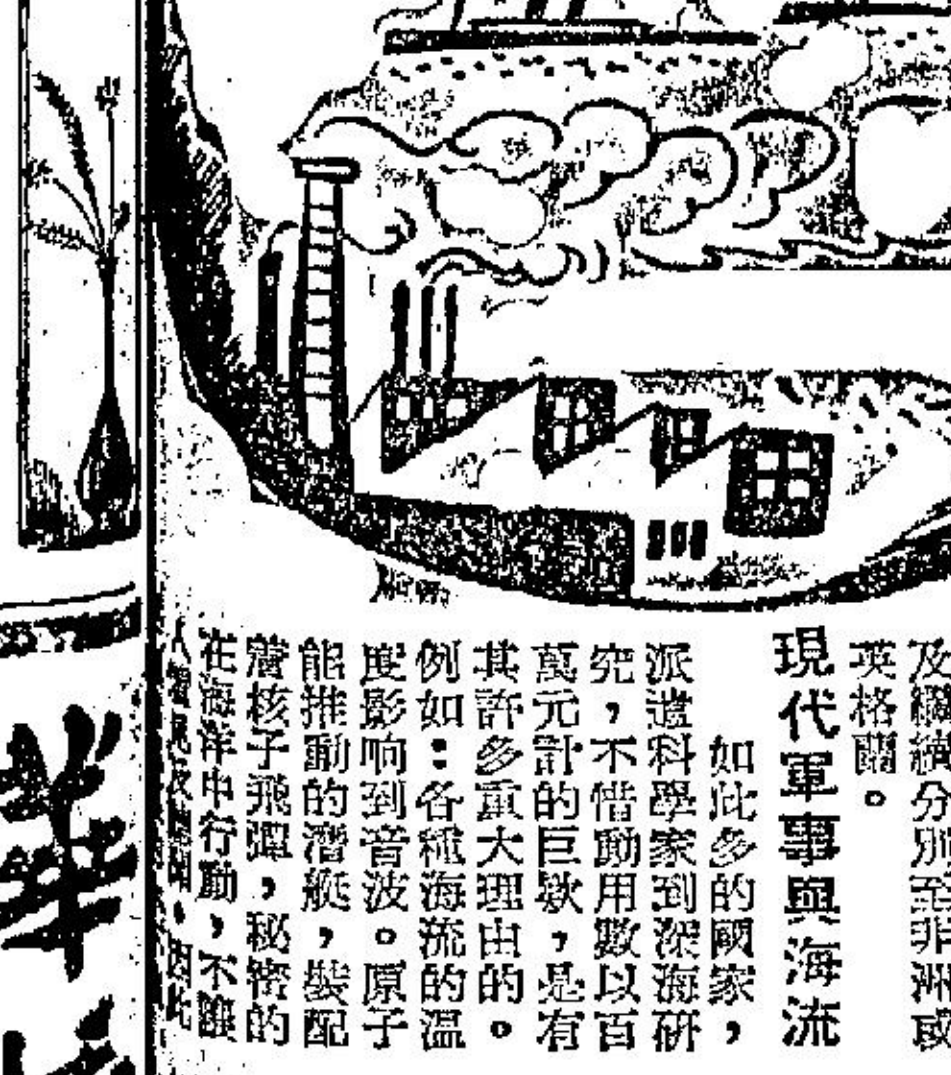 及繼續分別至非洲或
英格蘭。
現代軍事與海流
如此多的國家，
派遣科學家到深海研
究，不惜動用數以百
萬元計的巨欵，是有
其許多重大理由的。
例如：各種海流的溫
度影响到音波。原子
能推動的潛艇，裝配
着核子飛彈，秘密的
在海洋中行動，不
，因此
華